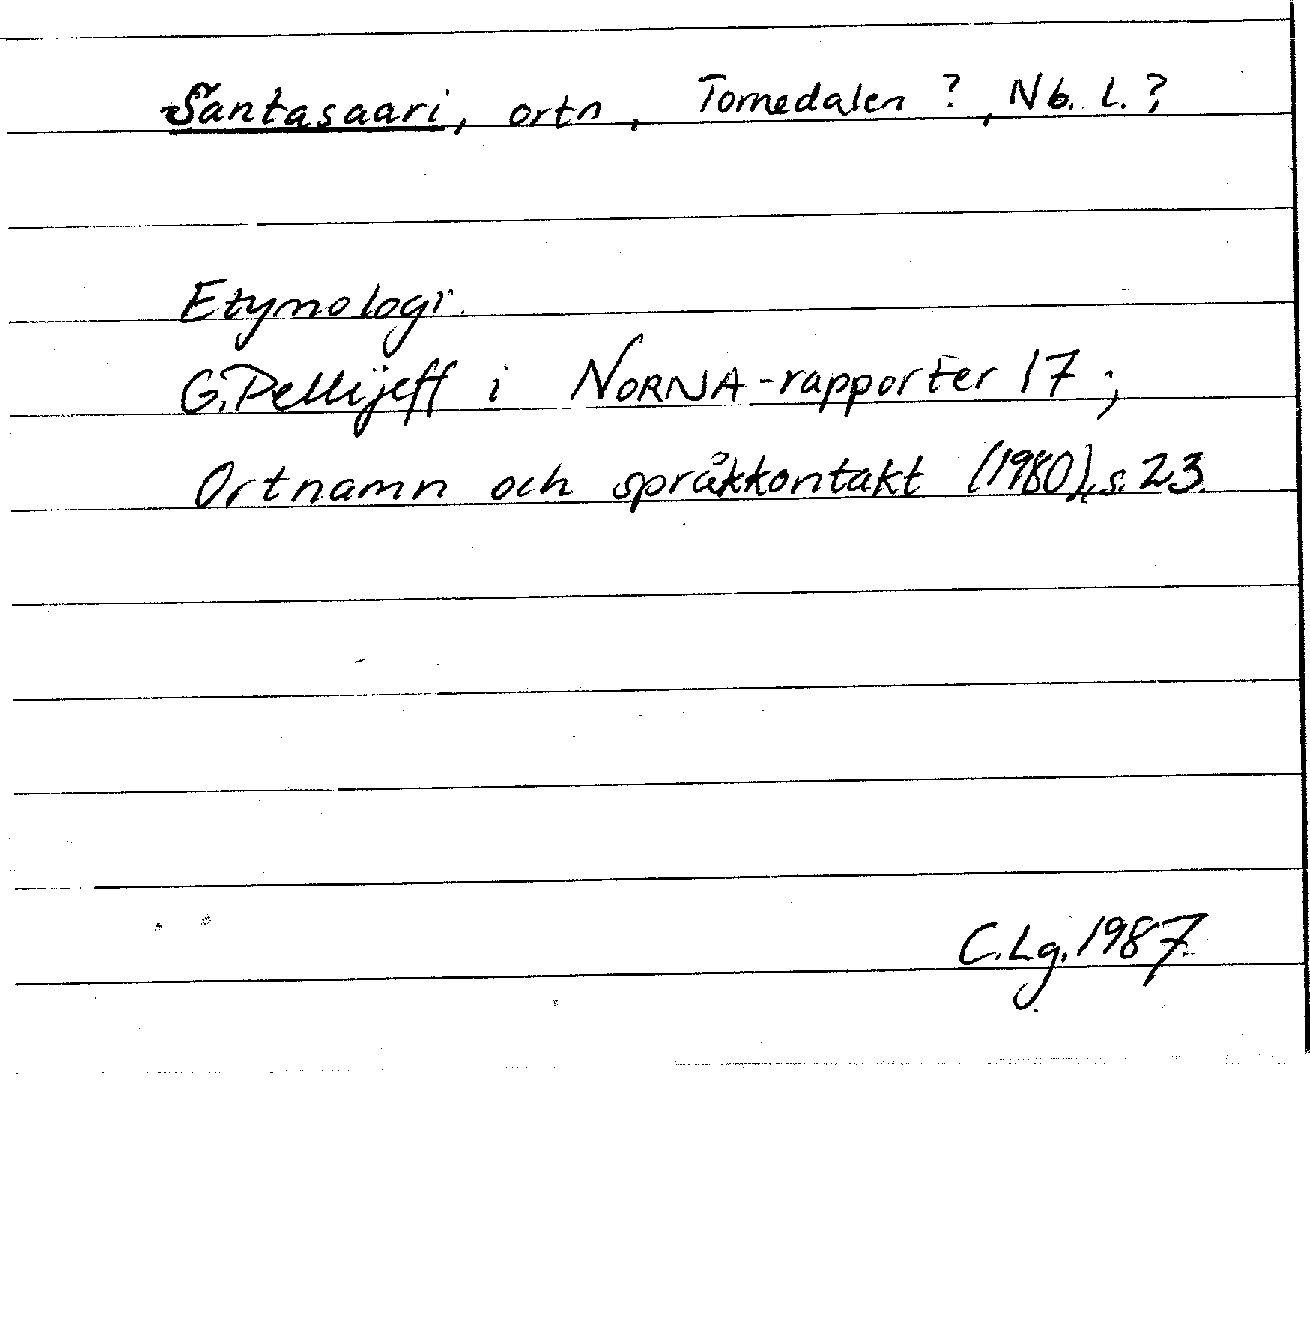 Santasaari, ortn, Tornedalen?, Nb. l.?
Etymologi.
G. Pellijeff i NORNA-rapporter 17;
Ortnamn och språkkontakt (1980), s. 23.
C.Lg. 1987